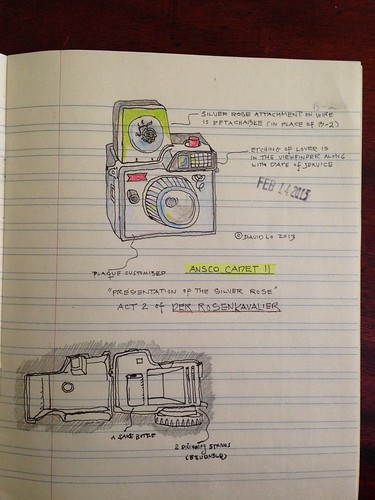 SILVER ROSE ATTACHMENT ON WIRE
IS DETACHABLE (IN PLACE OF B-2)
B-2
ETCHING OF LOVER IS
IN THE VIEWFINDER ALONG
WITH DATE OF SERVICE
FEB 14 2013
© DAVID LO 2013
PLAQUE CUSTOMISED
ANSCO CADET II
"PRESENTATION OF THE SILVER ROSE"
ACT 2 of DER ROSENKAVALIER
1 SAKE BOTTLE
2 DRINKING STRAWS
(BENDABLE)